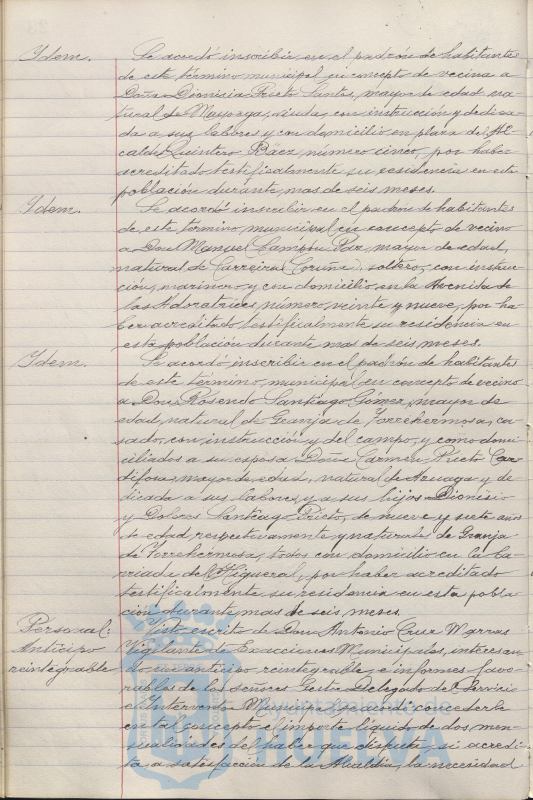 Ydem. Se acordó inscribir en el padrón de habitantes
de este término municipal en concepto de vecina a
Doña Dionisia Prieto Santos, mayor de edad, na-
tural de viuda, con instrucción y dedica-
da a sus labores y con domicilio en plaza del Al-
calde Quintero Báez, número cinco, por haber
acreditado testifisalmente su residencia en esta
población durante mas de seis meses.
Ydem. Se acordó inscribir en el padrón de habitantes
de este término municipal en concepto de vecino
a Don Manuel Paz, mayor de edad,
natural de Carreira (Coruña), soltero, con instruc-
ción, marinero y con domicilio en la Avenida de
las Adoratrices, número veinte y nueve, por ha-
ber acreditado testifisalmente su residencia en
esta población durante mas de seis meses.
Ydem. Se acordó inscribir en el padrón de habitantes
de este término municipal en concepto de vecino
a Don Rosendo Santiago Gómez, mayor de
edad, natural de Granja de Torrehermosa, ca-
sado, con instrucción y del campo, y como domi-
ciliados a su esposa Doña Carmen Prieto Car-
difosa, mayor de edad, natural de Azuaga y de-
dicada a sus labores, y a sus hijos Dionisio
y Dolores Santiago Prieto, de nueve y siete años
de edad, respectivamente, y naturales de Granja
de Torrehermosa, todos con domicilio en la ba-
rriada del Higueral, por haber acreditado
testifisalmente su residencia en esta pobla-
ción durante mas de seis meses.
Personal: Visto escrito de Don Antonio Cruz Marras
Anticipo Vigilante de Exacciones Municipales, interesan-
reintegrable do un anticipo reintegrable, e informes favo-
rables de los señores Gestor Delegado del Servicio
e Interventor Municipal, se acordó concederle
en tal concepto el importe líquido de dos men-
sualidades del haber que disfruta, si acredi-
ta a satisfacción de la Alcaldía, la necesidad